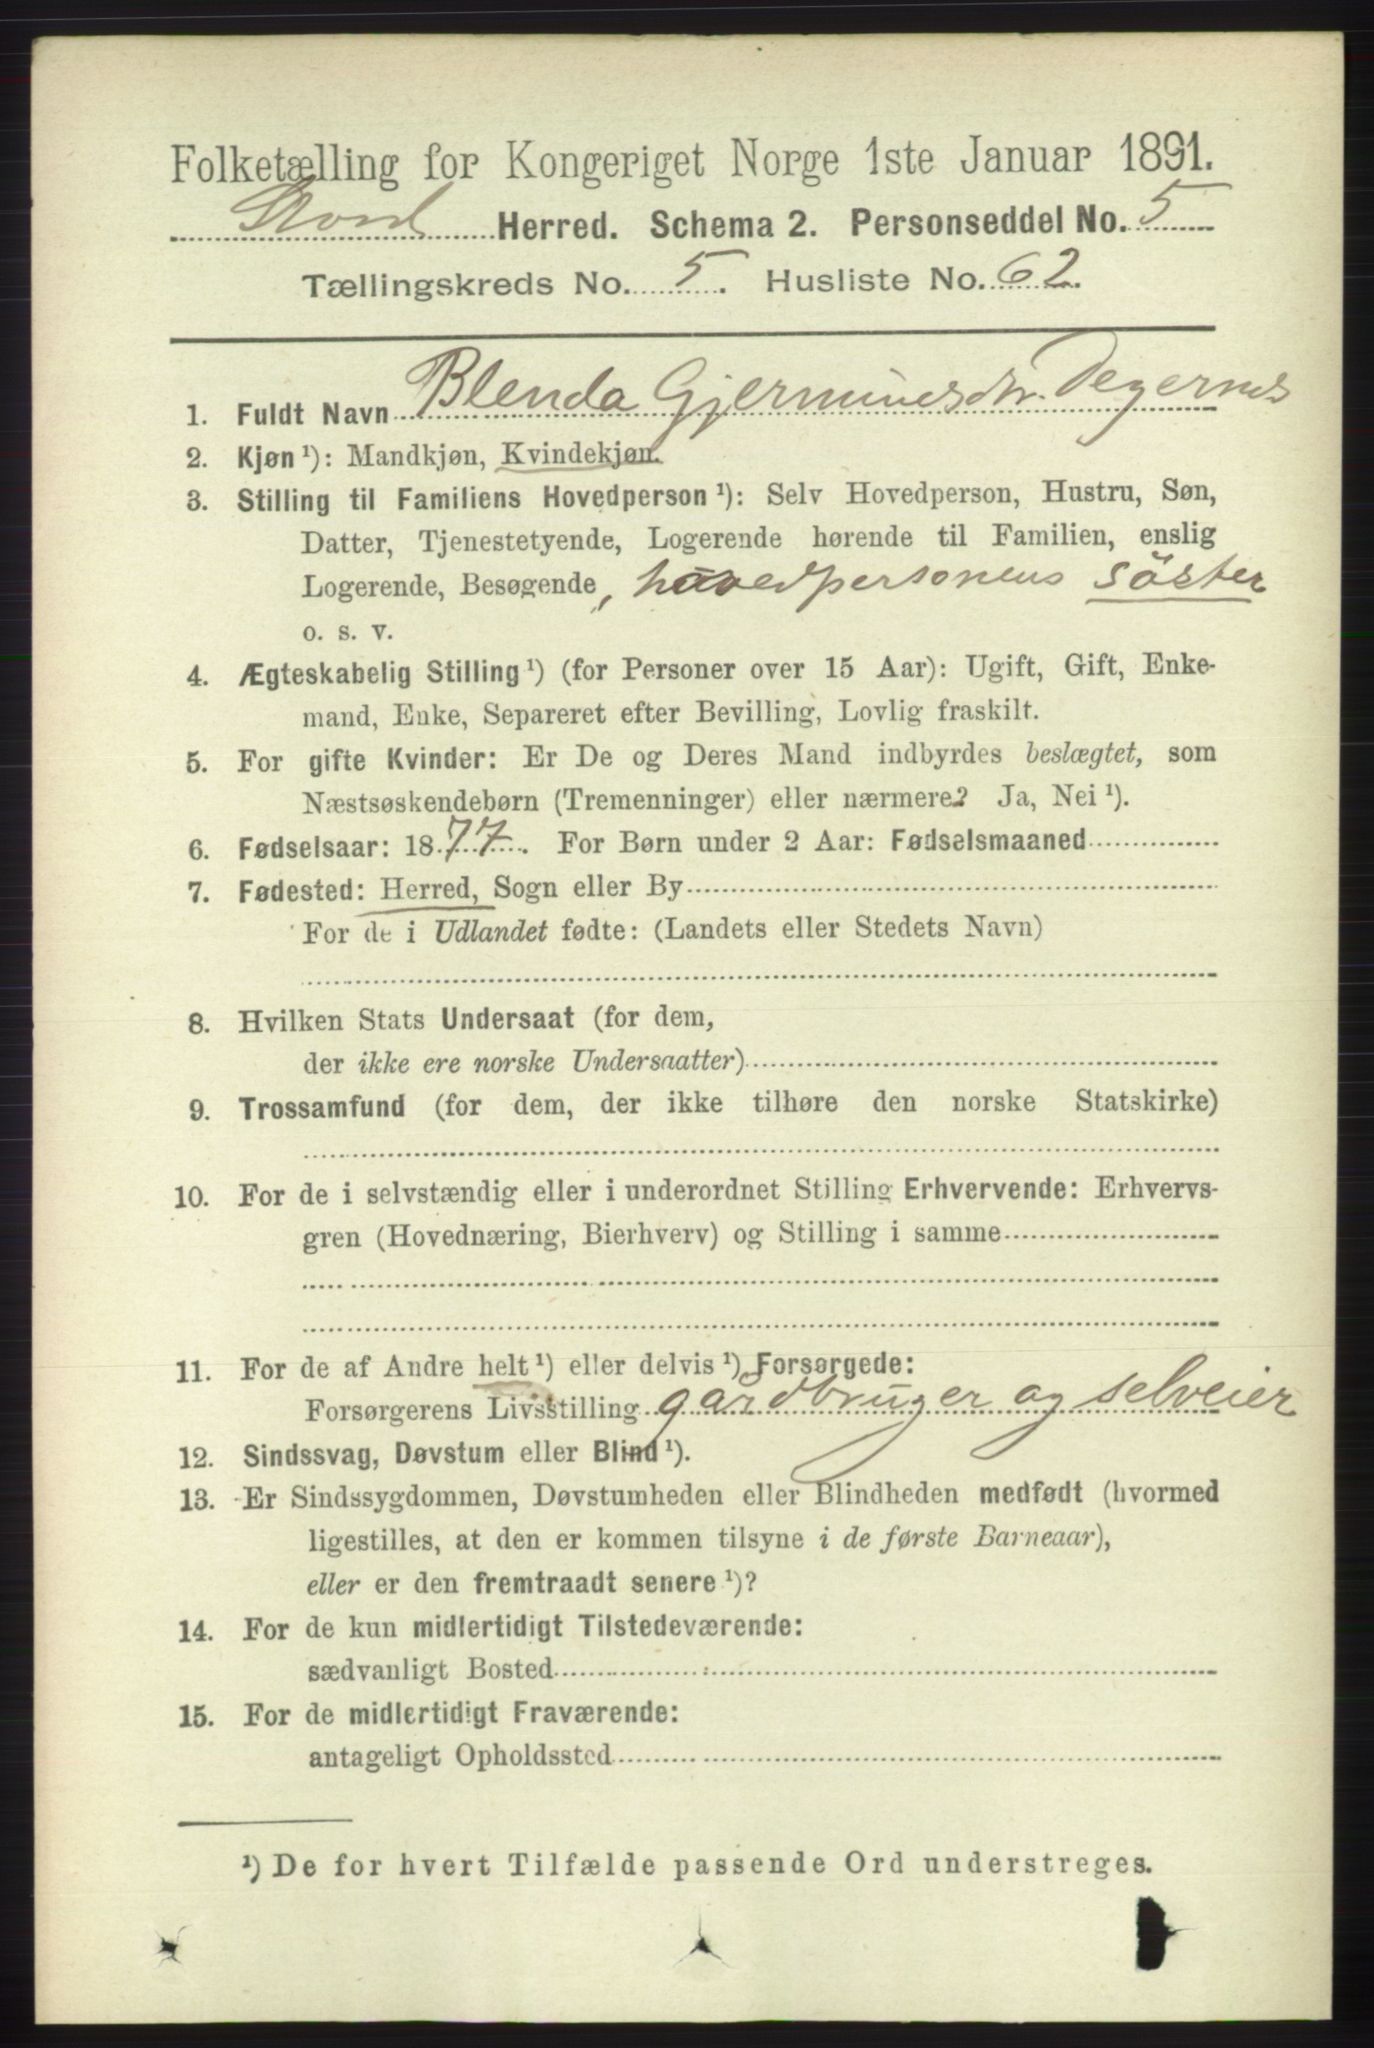 Folketælling for Kongeriget Norge 1ste Januar 1891.
Stord Herred. Schema 2. Personseddel No. 5
Tællingskreds No. 5. Husliste No. 62.
1. Fuldt Navn Blenda Gjermundsdtr. Degernes
2. Kjøn ¹): Mandkjøn, Kvindekjøn.
3. Stilling til Familiens Hovedperson ¹): Selv Hovedperson, Hustru, Søn,
Datter, Tjenestetyende, Logerende hørende til Familien, enslig
Logerende, Besøgende, hovedpersonens söster
o. s. v.
4. Ægteskabelig Stilling ¹) (for Personer over 15 Aar): Ugift, Gift, Enke-
mand, Enke, Separeret efter Bevilling, Lovlig fraskilt.
5. For gifte Kvinder: Er De og Deres Mand indbyrdes beslægtet, som
Næstsøskendebørn (Tremenninger) eller nærmere? Ja, Nei ¹).
6. Fødselsaar: 1877. For Børn under 2 Aar: Fødselsmaaned
7. Fødested: Herred, Sogn eller By
For de i Udlandet fødte: (Landets eller Stedets Navn)
8. Hvilken Stats Undersaat (for dem,
der ikke ere norske Undersaatter)
9. Trossamfund (for dem, der ikke tilhøre den norske Statskirke)
10. For de i selvstændig eller i underordnet Stilling Erhvervende: Erhvervs-
gren (Hovednæring, Bierhverv) og Stilling i samme
11. For de af Andre helt ¹) eller delvis ¹) Forsørgede:
Forsørgerens Livsstilling gårdbruger og selveier
12. Sindssvag, Døvstum eller Blind ¹).
13. Er Sindssygdommen, Døvstumheden eller Blindheden medfødt (hvormed
ligestilles, at den er kommen tilsyne i de første Barneaar),
eller er den fremtraadt senere ¹)?
14. For de kun midlertidigt Tilstedeværende:
sædvanligt Bosted
15. For de midlertidigt Fraværende:
antageligt Opholdssted
¹) De for hvert Tilfælde passende Ord understreges.